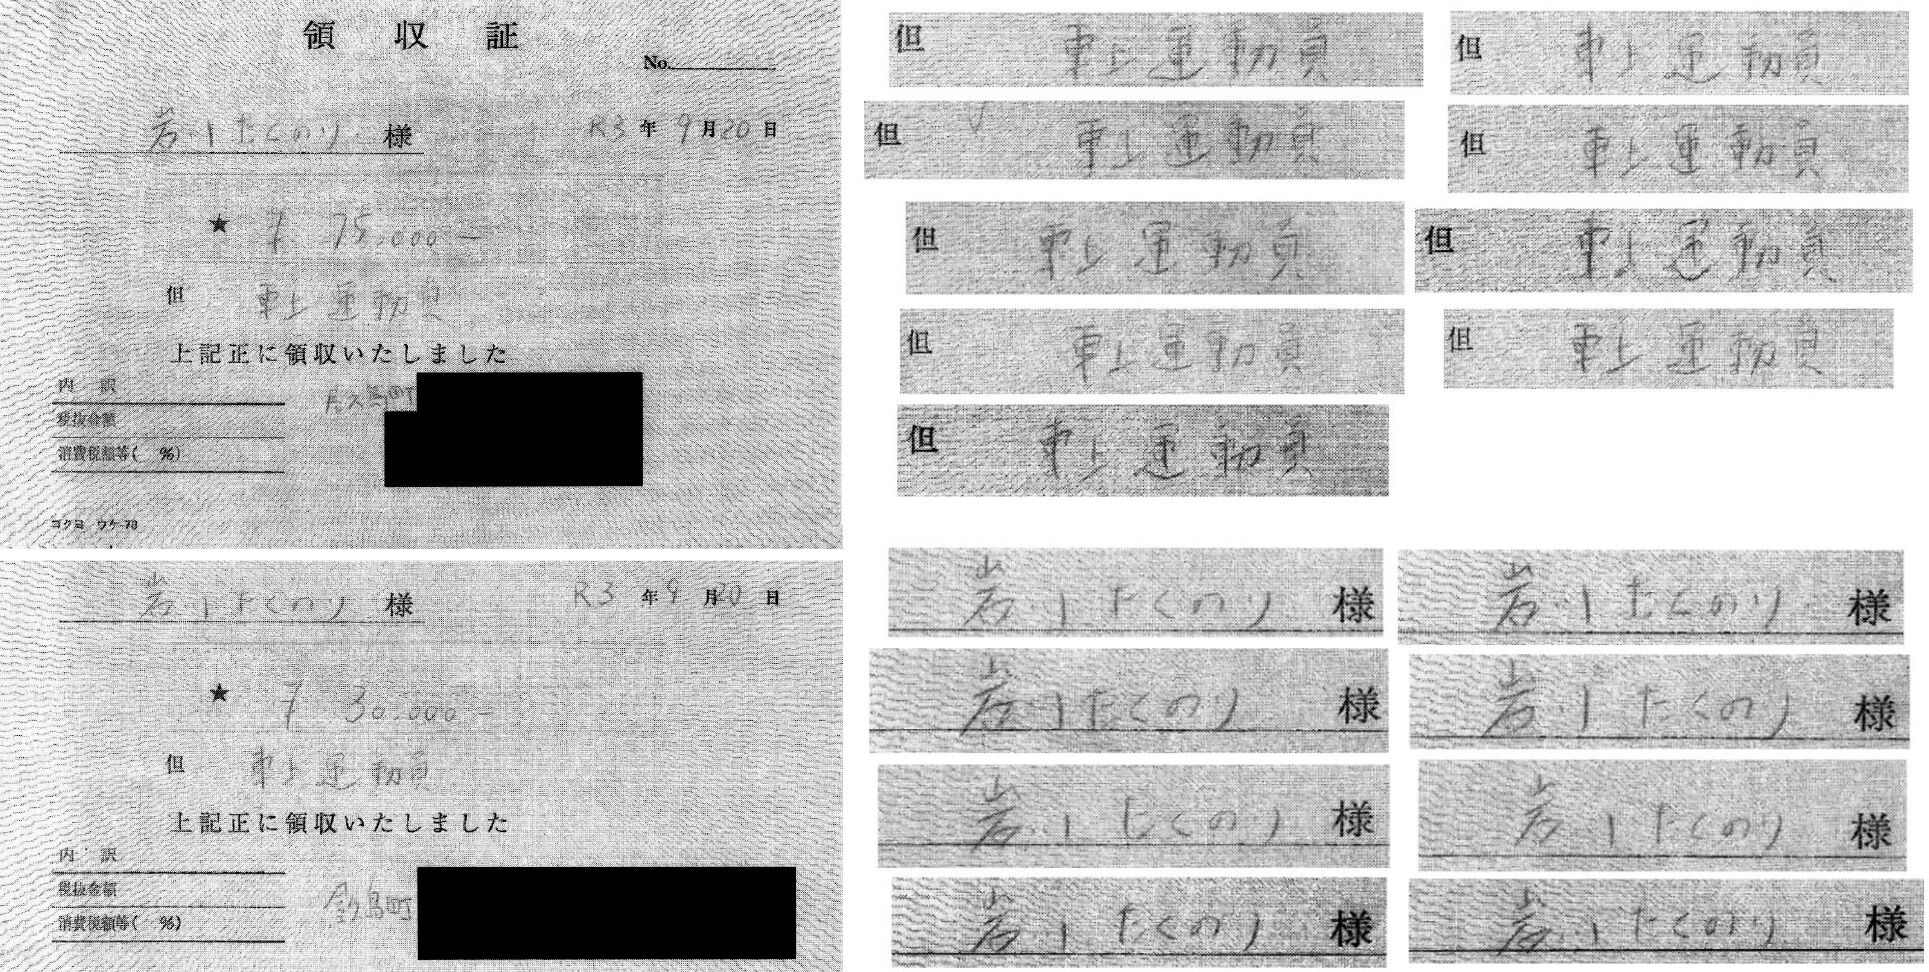 領収証
No.
岩川たくのり 様 R3年9月20日
★ ¥ 75,000―
但 車上運動員
上記正に領収いたしました
内訳
税抜金額
消費税額等( %)
コクヨ ウケ-78
岩川たくのり 様 R3年9月20日
★ ¥ 30,000―
但 車上運動員
上記正に領収いたしました
内訳
税抜金額
消費税額等( %)
但 車上運動員
但 車上運動員
但 車上運動員
但 車上運動員
但 車上運動員
但 車上運動員
但 車上運動員
但 車上運動員
但 車上運動員
岩川たくのり 様
岩川たくのり 様
岩川たくのり 様
岩川たくのり 様
岩川たくのり 様
岩川たくのり 様
岩川たくのり 様
岩川たくのり 様